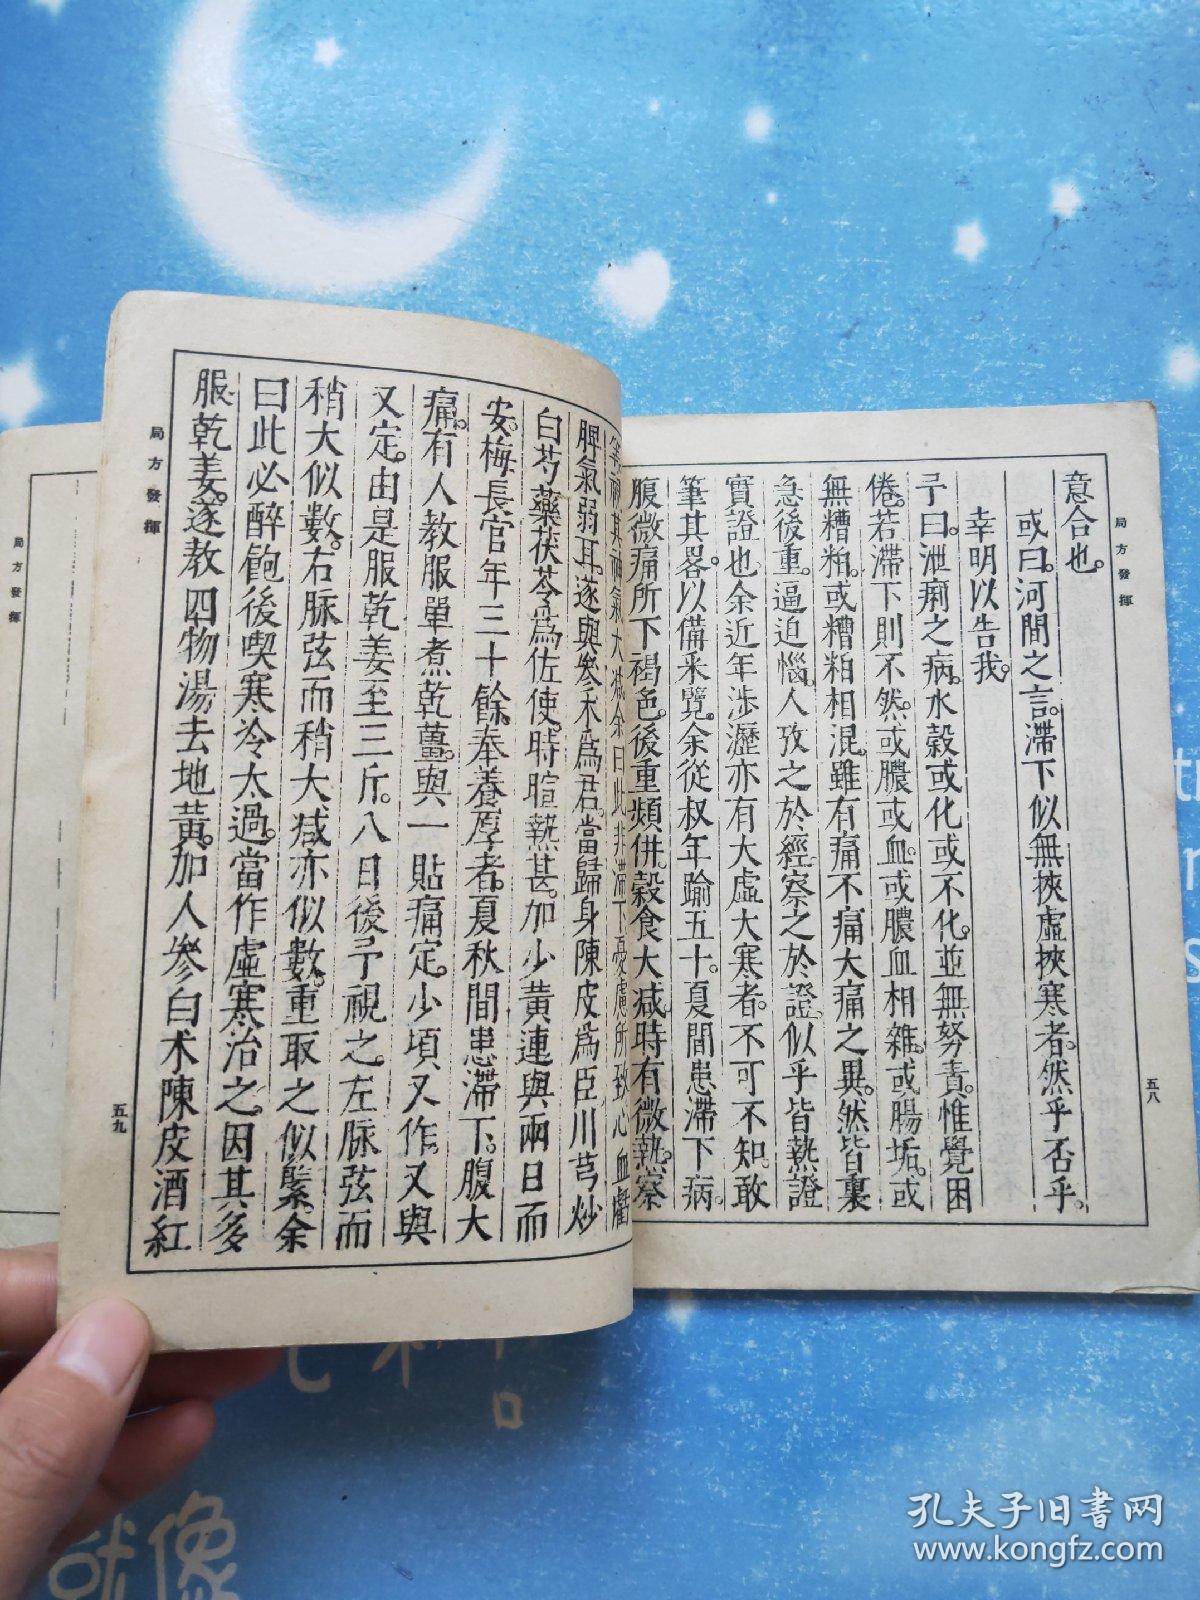 局方發揮
五八
意合也。
或曰。河間之言。滯下似無挾虛挾寒者。然乎否乎。
幸明以告我。
予曰。泄痢之病。水穀或化或不化。並無努責。惟覺困
倦。若滯下則不然。或膿或血。或膿血相雜。或腸垢。或
無糟粕。或糟粕相混。雖有痛不痛大痛之異。然皆裏
急後重。逼迫惱人。攷之於經。察之於證。似乎皆熱證
實證也。余近年涉歷亦有大虛大寒者。不可不知。敢
筆其畧。以備采覽。余從叔年踰五十。夏間患滯下病。
腹微痛所下褐色。後重頻併。穀食大減。時有微熱。察
其神氣大減余曰此非滯下憂慮所致心血虧
脾氣弱耳。遂與參朮為君。當歸身陳皮為臣川芎炒
白芍藥茯苓為佐使。時暄熱甚。加少黃連。與兩日而
安。梅長官年三十餘。奉養厚者。夏秋間患滯下。腹大
痛。有人教服單煮乾薑。與一貼痛定。少頃又作。又與
又定。由是服乾姜至三斤。八日後予視之。左脉弦而
稍大似數。右脉弦而稍大減亦似數。重取之似緊。余
曰此必醉飽後喫寒冷太過。當作虛寒治之。因其多
服乾姜。遂教四物湯去地黃。加人參白朮陳皮酒紅
局方發揮
五九
局方發揮
孔夫子旧书网
www.kongfz.com
就像